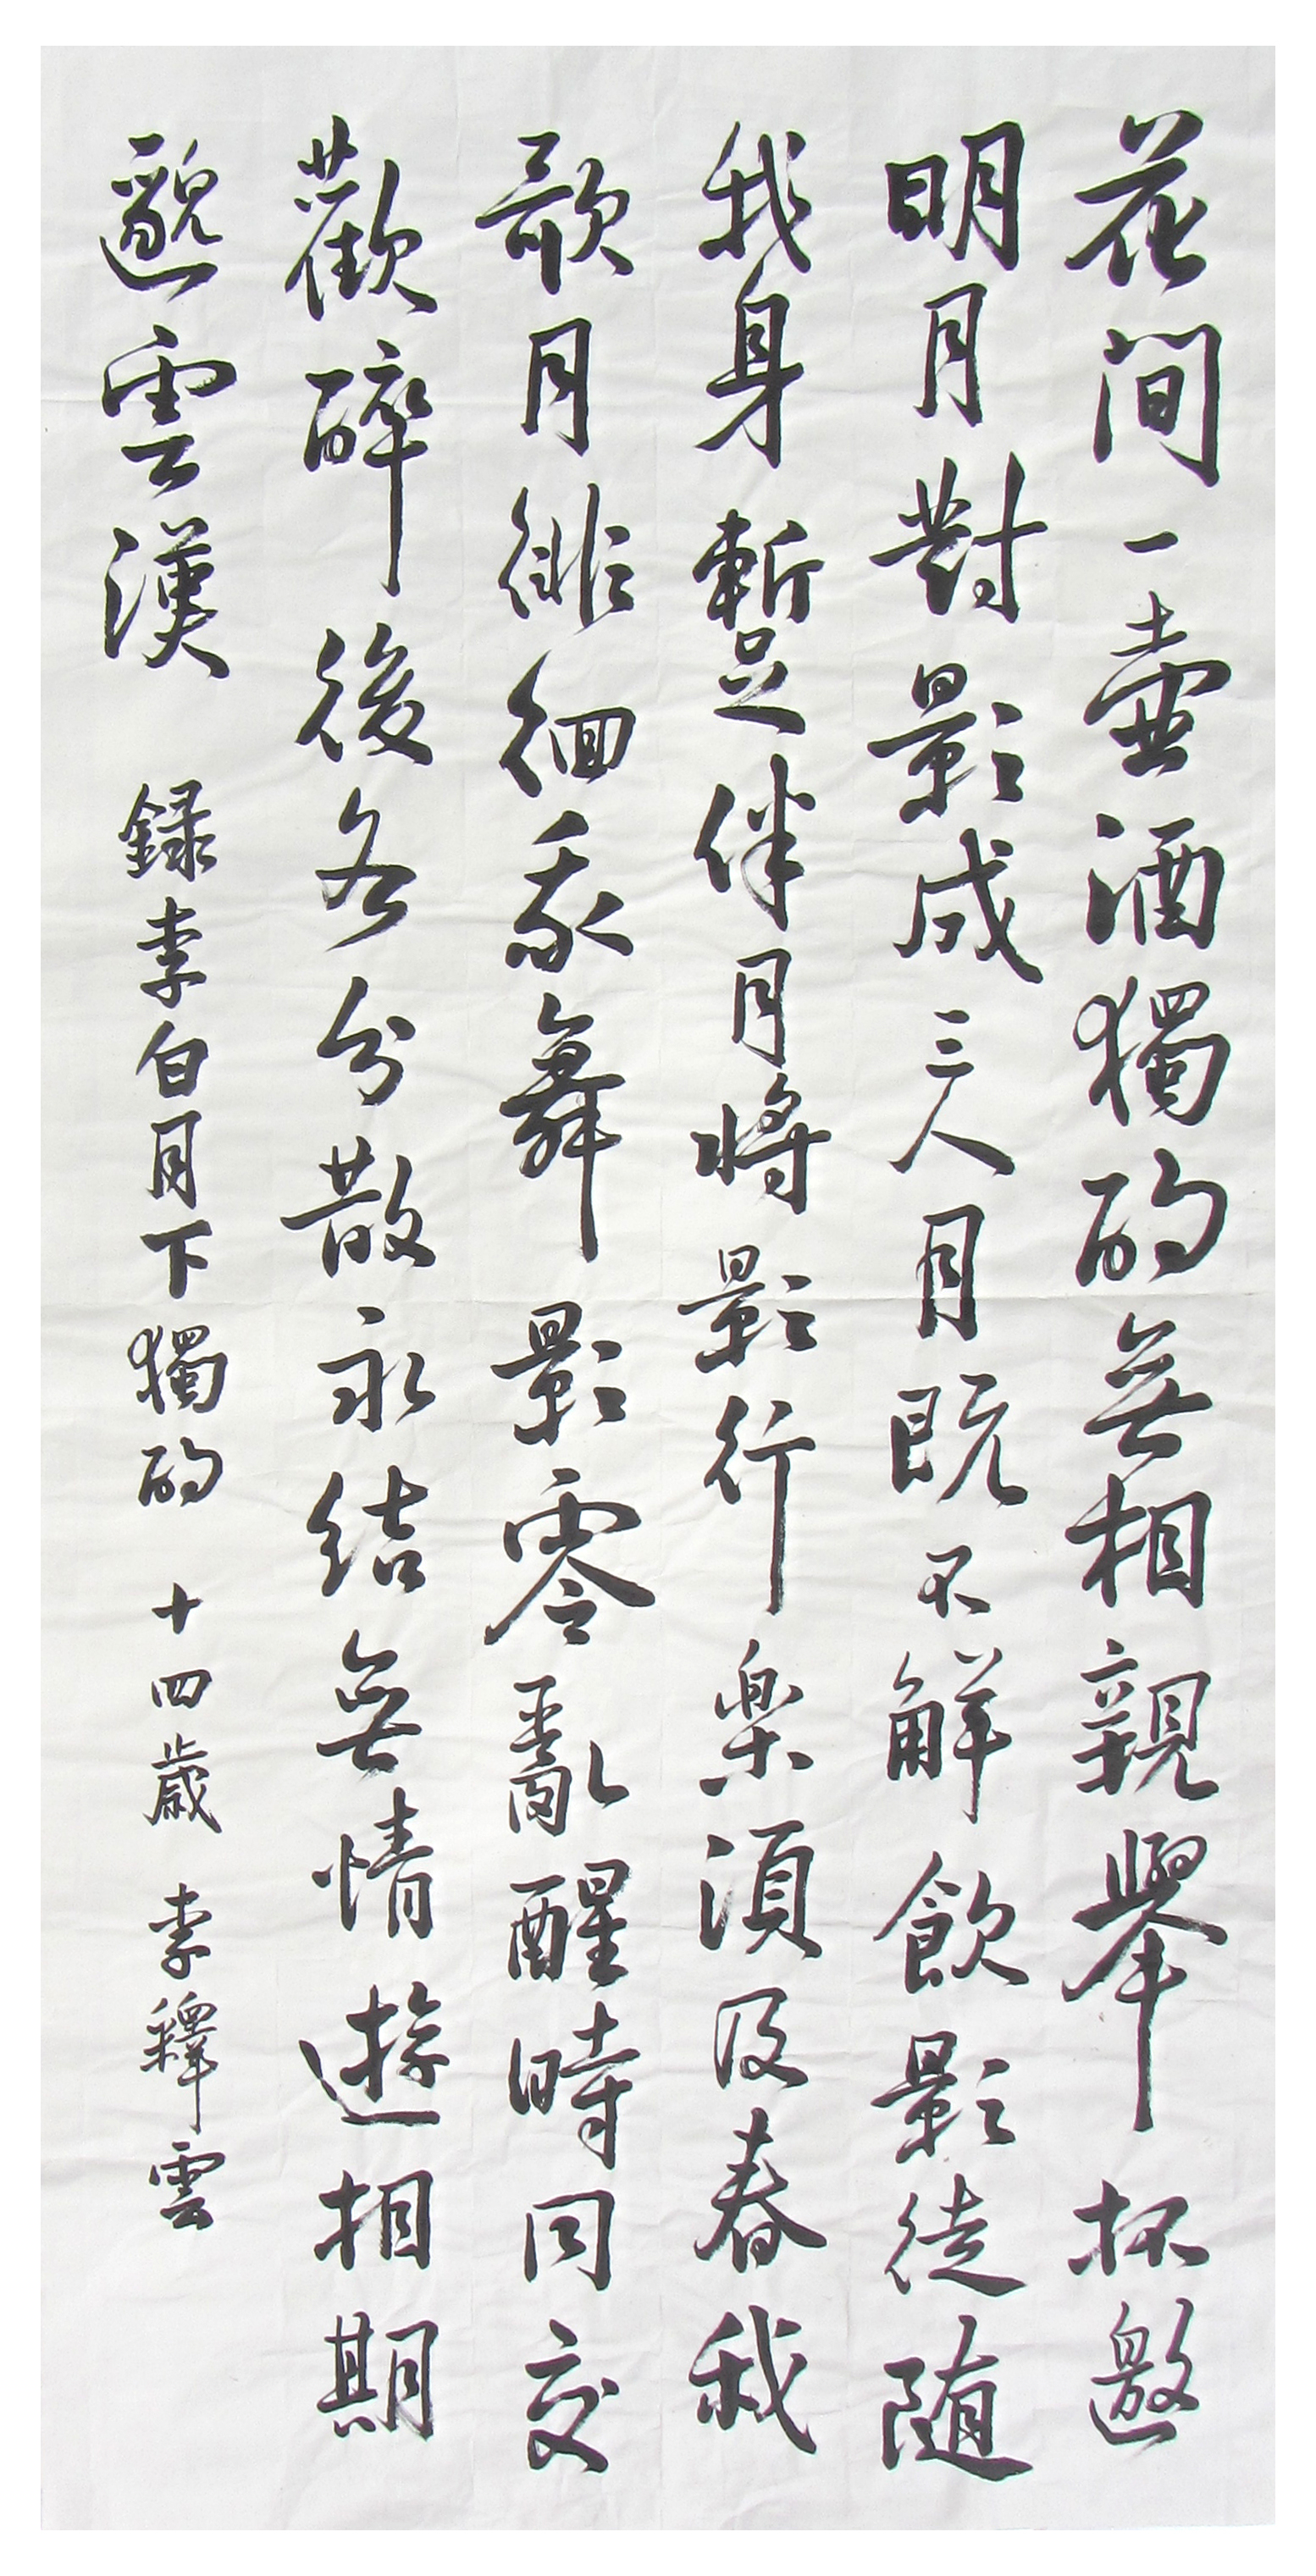 花间一壷酒獨酌無相親舉杯邀
明月對影成三人月既不解飲影徒随
我身暫伴月將影行楽須及春我
歌月徘徊我舞影零亂醒時同交
歡醉後各分散永结無情遊相期
邈雲漢 録李白月下獨酌 十四歳 李釋雲